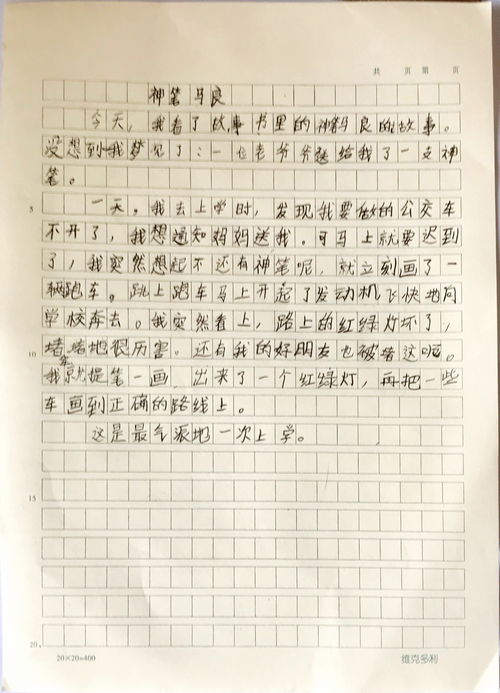 共 页 第 页
神笔马良
今天，我看了故事书里的神笔马良的故事。
没想到我梦见了：一位老爷爷送给我了一支神
笔。
5 一天。我去上学时，发现我要做的公交车
不开了，我想通知妈妈送我。可马上就要迟到
了，我突然想起不还有神笔呢，就立刻画了一
辆跑车。跳上跑车马上开起了发动机飞快地向
学校奔去。我突然看上，路上的红绿灯坏了，
10 堵堵地很厉害。还有我的好朋友也被堵这呢。
我就提笔一画，出来了一个红绿灯，再把一些
车画到正确的路线上。
这是最气派地一次上学。
15
20
20×20=400 维克多利